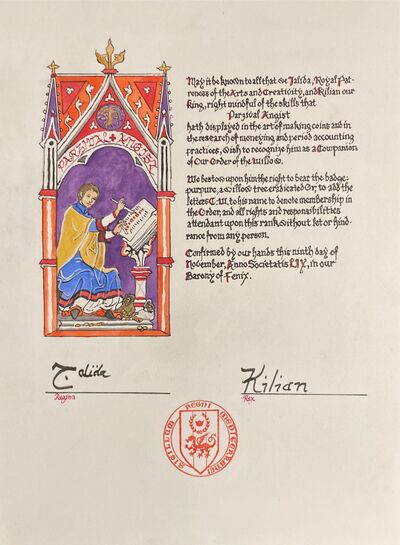 May it be known to all that we Talida, Royal Pat-
roness of the Arts and Creativity, and Kilian our
King, right mindful of the skills that
Parsival Angist
hath displayed in the art of making coins and in
the research of moneying and period accounting
practices, wish to recognize him as a Companion
of Our Order of the Willow.
We bestow upon him the right to bear the badge:
purpure, a willow tree eradicated Or, to add the
letters C.W. to his name to denote membership in
the Order, and all rights and responsibilities
attendant upon this rank without let or hind-
rance from any person.
Confirmed by our hands this ninth day of
November, Anno Societatis LIX, in our
Barony of Fenix.
PARSIVAL ANGIST
Talida
Regina
Kilian
Rex
SIGILLUM REGNI MEDITERRANEI